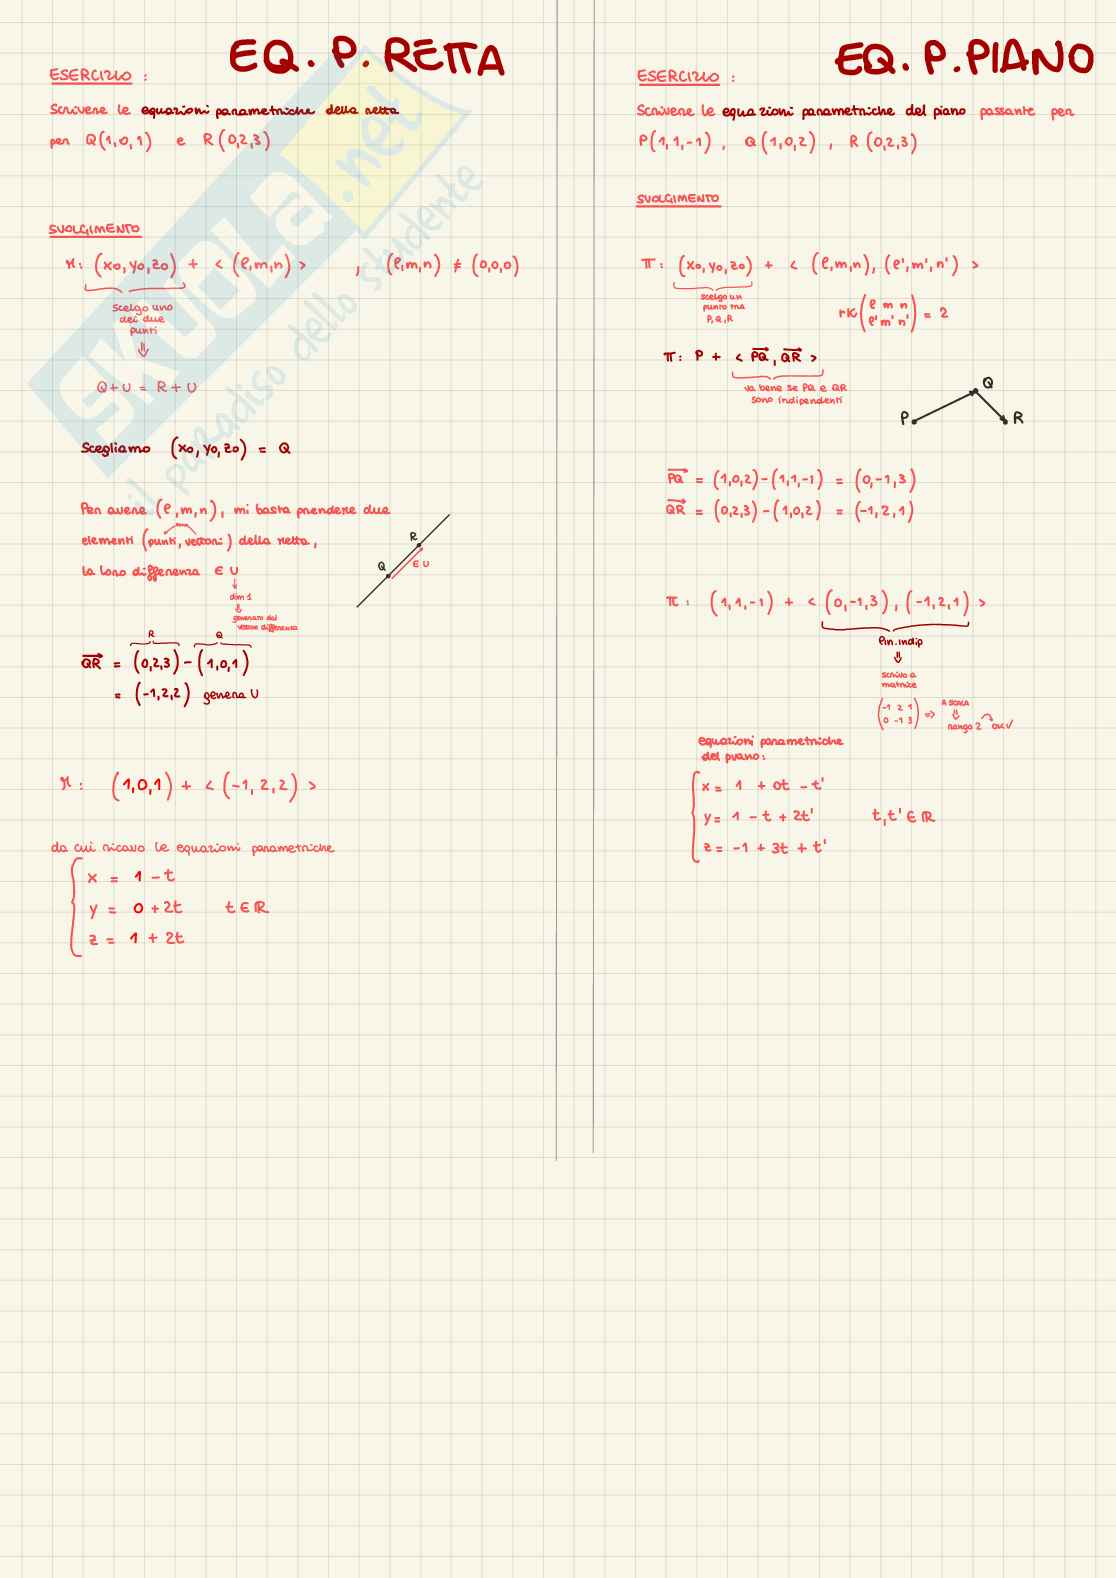 EQ. P. RETTA
ESERCIZIO :
Scrivere le equazioni parametriche della retta
per Q(1,0,1) e R(0,2,3)
SVOLGIMENTO
r: (x0, y0, z0) + < (l,m,n) > , (l,m,n) ≠ (0,0,0)
Scelgo uno
dei due
punti
⇓
Q+U = R+U
Scegliamo (x0, y0, z0) = Q
Per avere (l,m,n), mi basta prendere due
elementi (punti, vettori) della retta,
la loro differenza ∈ U
↓
dim 1
⇓
generato dal
vettore differenza
Q R ∈ U
R Q
QR = (0,2,3) - (1,0,1)
= (-1,2,2) genera U
r: (1,0,1) + < (-1,2,2) >
da cui ricavo le equazioni parametriche
x = 1 - t
y = 0 + 2t t ∈ ℝ
z = 1 + 2t
EQ. P. PIANO
ESERCIZIO :
Scrivere le equazioni parametriche del piano passante per
P(1,1,-1) , Q(1,0,2) , R(0,2,3)
SVOLGIMENTO
π: (x0, y0, z0) + < (l,m,n), (l',m',n') >
scelgo un
punto tra
P, Q, R
rk (l m n
l' m' n') = 2
π: P + < PQ, QR >
va bene se PQ e QR
sono indipendenti
P Q R
PQ = (1,0,2) - (1,1,-1) = (0,-1,3)
QR = (0,2,3) - (1,0,2) = (-1,2,1)
π: (1,1,-1) + < (0,-1,3), (-1,2,1) >
lin. indip
⇓
scrivo a
matrice
(-1 2 1
0 -1 3) => A SCALA
⇓
rango 2 ok √
equazioni parametriche
del piano:
x = 1 + 0t - t'
y = 1 - t + 2t' t,t' ∈ ℝ
z = -1 + 3t + t'
SKUOLA.net
il paradiso dello studente